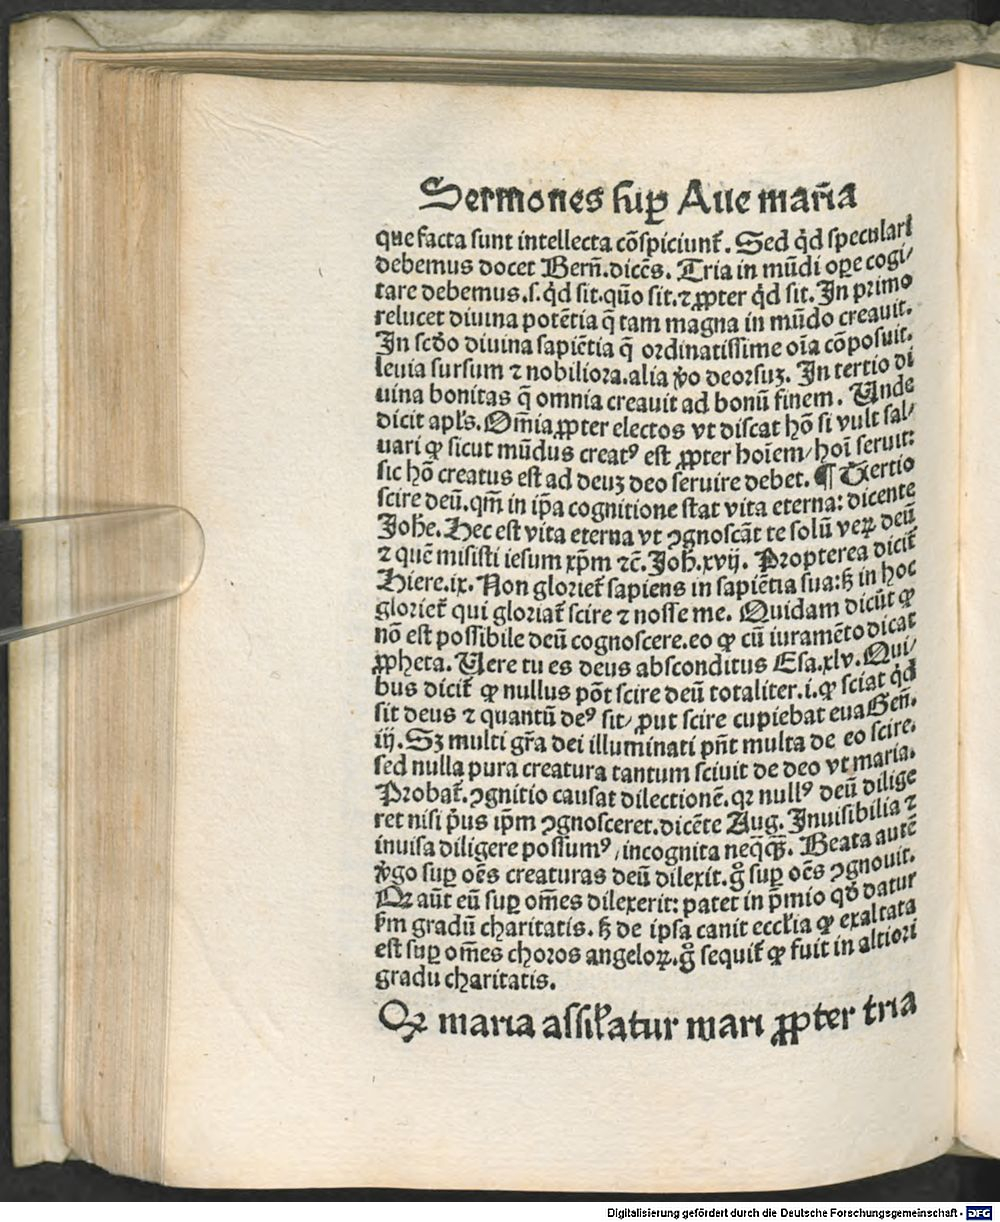 Sermones suꝑ Aue maria
que facta sunt intellecta cōspiciunt̃. Sed qͥd speculari
debemus docet Bern̄.dicēs. Tria in mūdi oꝑe cogi/
tare debemus.s. qͥd sit.quō sit.⁊ ꝓpter qͥd sit. In primo
relucet diuina potētia q̄ tam magna in mūdo creauit.
In scd̄o diuina sapiētia q̄ ordinatissime oīa cōposuit.
leuia sursum ⁊ nobiliora.alia ꝟo deorsuꝫ. In tertio di
uina bonitas q̄ omnia creauit ad bonū finem. Unde
dicit apl̄s. Om̄ia ꝓpter electos vt discat hō si vult sal/
uari ꝙ sicut mūdus creatꝰ est ꝓpter hoīem/hoī seruit:
sic hō creatus est ad deuꝫ deo seruire debet. ¶ Tertio
scire deū.qm̄ in ip̄a cognitione stat vita eterna: dicente
Joh̄e. Hec est vita eterna vt ꝯgnoscāt te solū veꝝ deū
⁊ quē misisti iesum xp̄m ⁊c̄. Joh̄.xvij. Propterea dicit̃
Hiere.ix. Non gloriet̃ sapiens in sapiētia sua:ß in hoc
gloriet̃ qui gloriat̃ scire ⁊ nosse me. Quidam dicūt ꝙ
nō est possibile deū cognoscere.eo ꝙ cū iuramēto dicat
ꝓpheta. Uere tu es deus absconditus Esa.xlv. Qui/
bus dicit̃ ꝙ nullus pōt scire deū totaliter.i.ꝙ sciat qͥd
sit deus ⁊ quantū deꝰ sit/ ꝓut scire cupiebat eua Gen̄.
iij. Sꝫ multi gr̄a dei illuminati pn̄t multa de eo scire.
sed nulla pura creatura tantum sciuit de deo vt maria.
Probat̃. ꝯgnitio causat dilectionē. qꝛ nullꝰ deū dilige
ret nisi pͥus ip̄m ꝯgnosceret.dicēte Aug. Inuisibilia ⁊
inuisa diligere possumꝰ/incognita neq̄q̄ꝫ. Beata autē
ꝟgo suꝑ oēs creaturas deū dilexit.gͦ suꝑ oēs ꝯgnouit.
Qꝛ aūt eū suꝑ om̄es dilexerit: patet in p̄mio qd̄ datur
ẜm gradū charitatis. ß de ipsa canit eccl̄ia ꝙ exaltata
est suꝑ om̄es choros angeloꝝ.gͦ sequit̃ ꝙ fuit in altiori
gradu charitatis.
Qꝛ maria assil̄atur mari ꝓpter tria
Digitalisierung gefördert durch die Deutsche Forschungsgemeinschaft - DFG